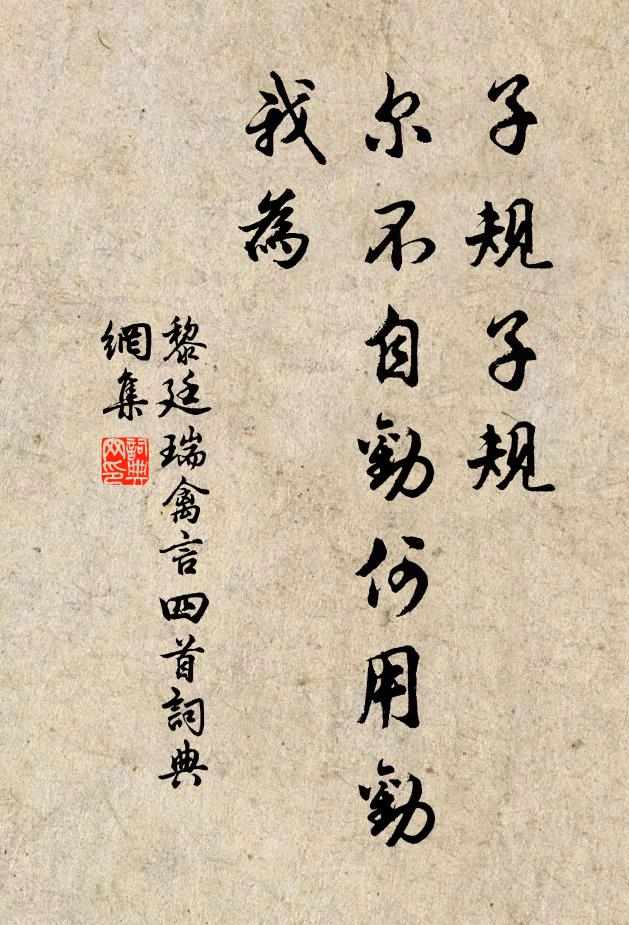 子規子規
尔不自勸何用勸
我為
黎廷瑞禽言四首詞典
網集
詞典
网印